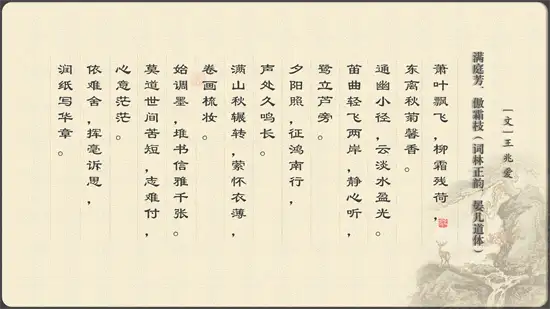 满庭芳．傲霜枝（词林正韵，晏几道体）
｜文｜王兆爱
萧叶飘飞，柳霜残荷，
东离秋菊馨香。
通幽小径，云淡水盈光。
笛曲轻飞两岸，静心听，
鹭立芦旁。
夕阳照，征鸿南行，
声处久鸣长。
满山秋辗转，萦怀衣薄，
卷画梳妆。
始调墨，堆书信雅千张。
莫道世间苦短，志难付，
心意茫茫。
依难舍，挥毫诉思，
润纸写华章。